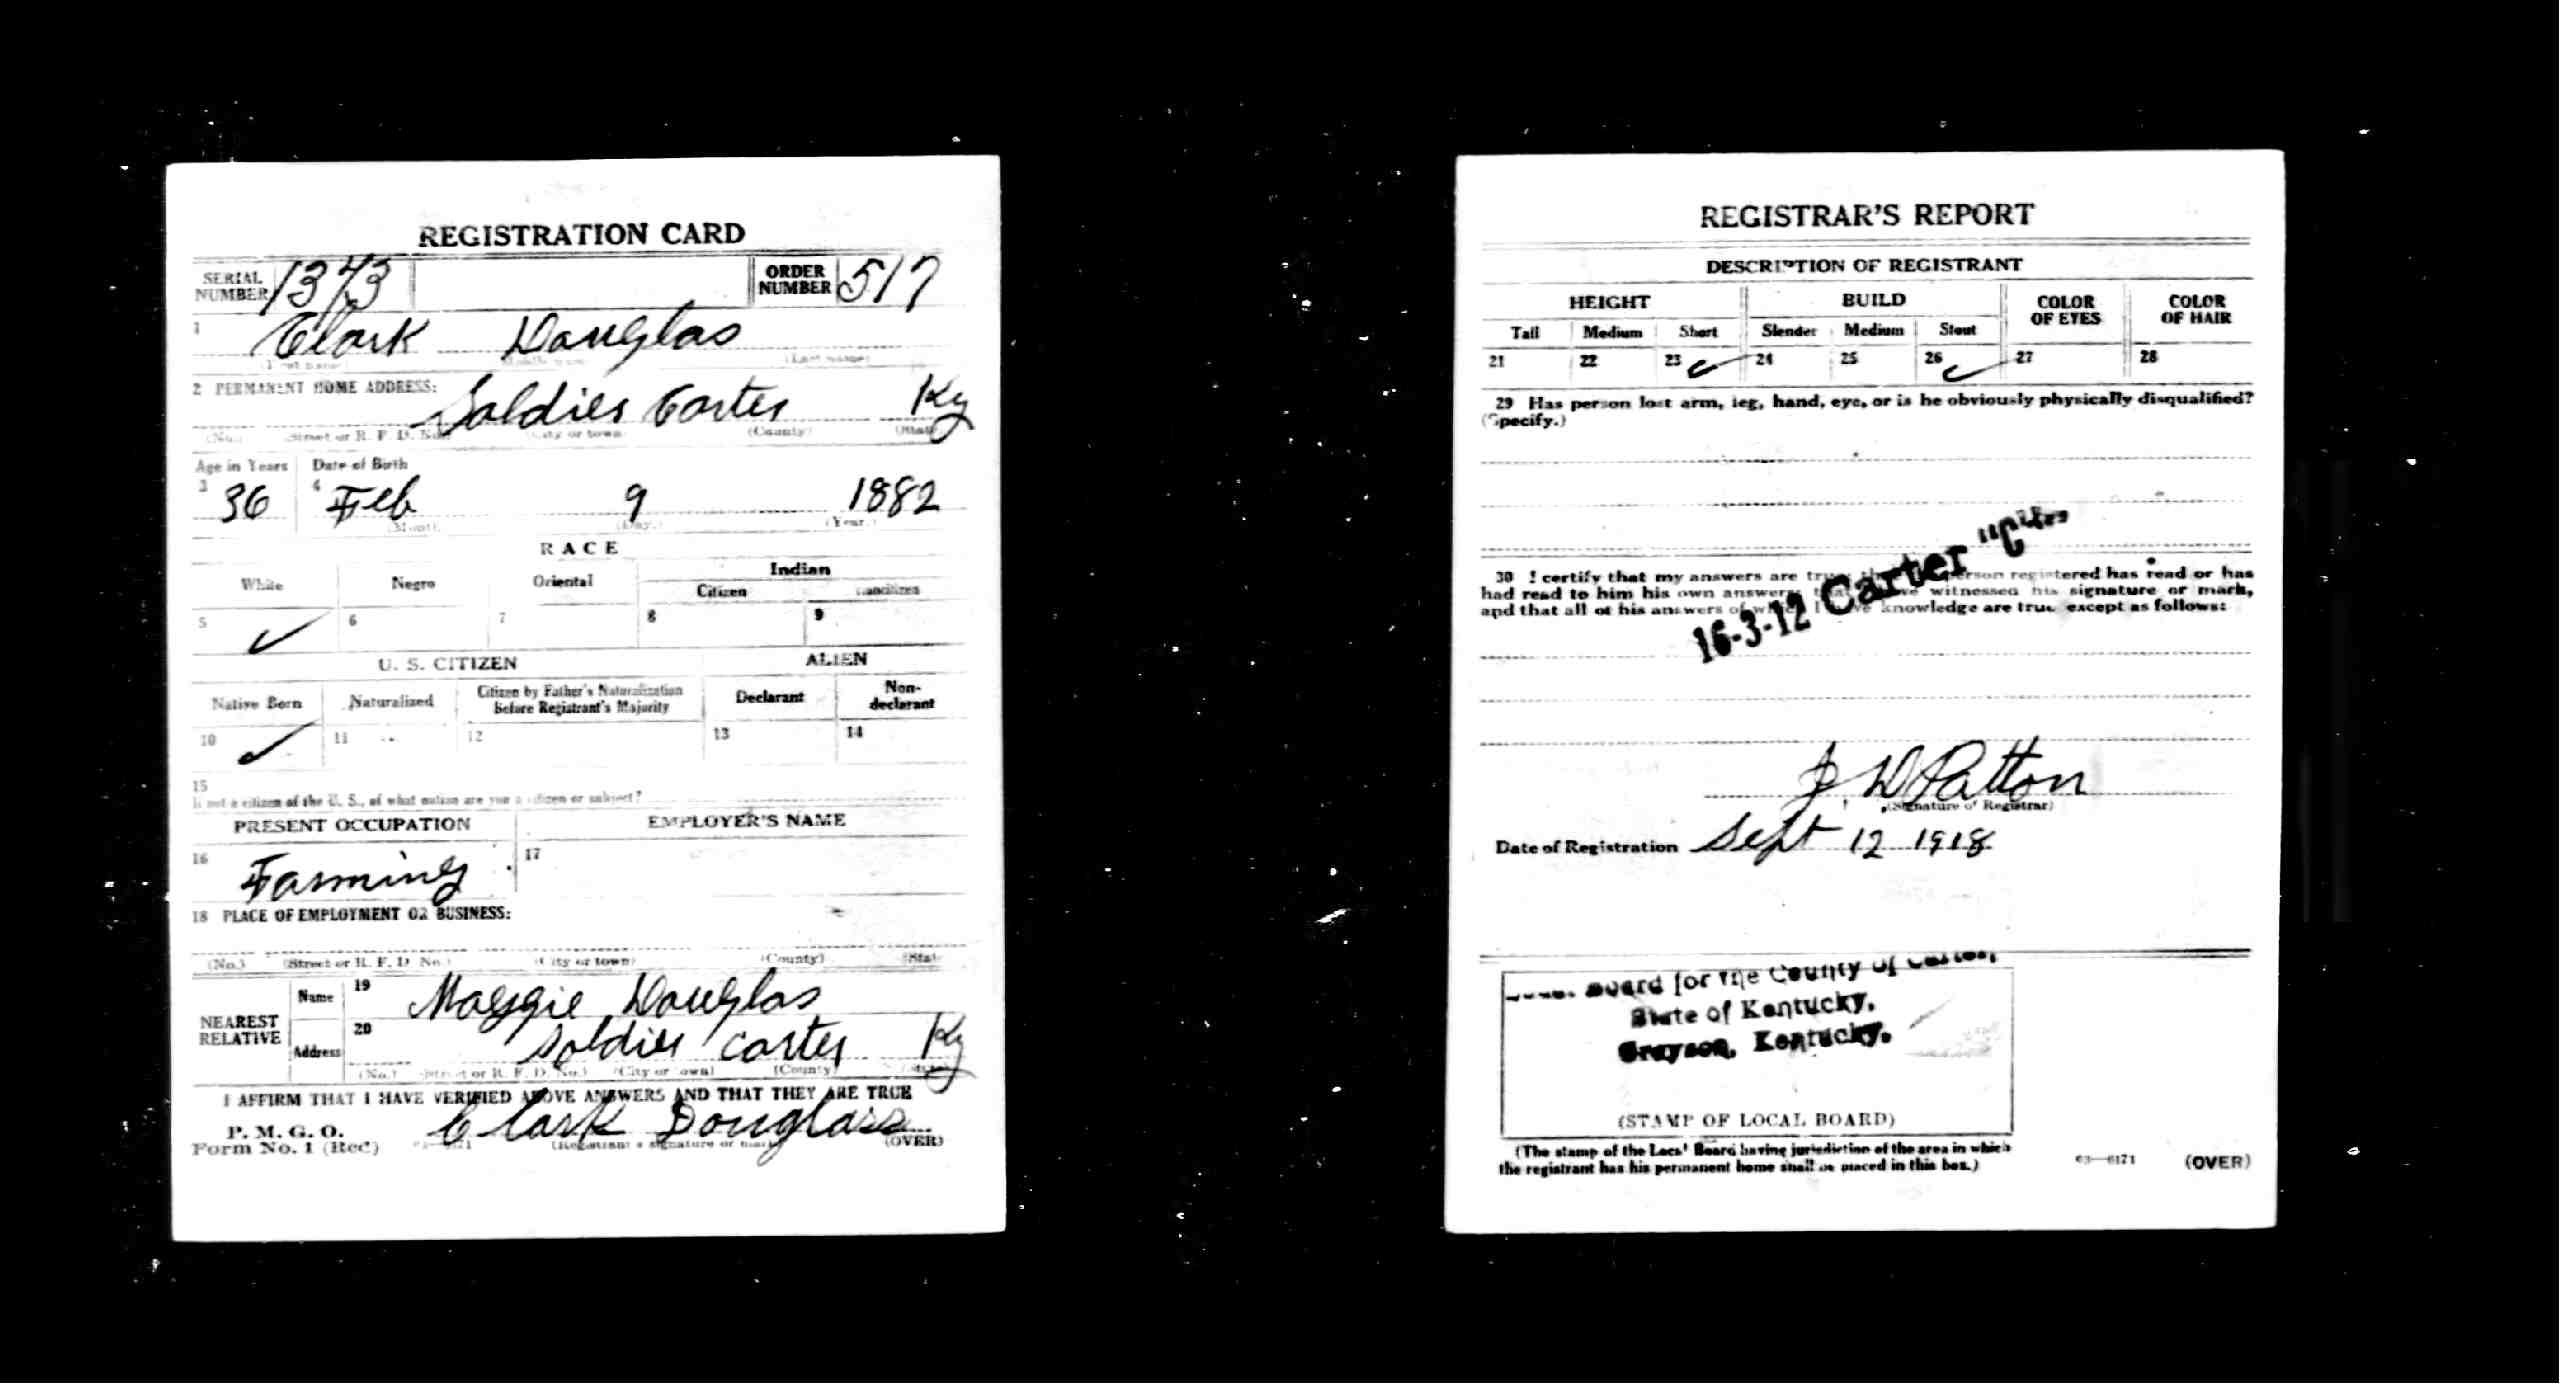 REGISTRATION CARD
SERIAL NUMBER 1373 ORDER NUMBER 517
1 Clark Douglas
(First name) (Middle name) (Last name)
2 PERMANENT HOME ADDRESS: Soldier Carter Ky
(No.) (Street or R. F. D. No.) (City or town) (County) (State)
Age in Years Date of Birth
3 36 4 Feb 9 1882
(Month.) (Day.) (Year.)
RACE
White Negro Oriental Indian
Citizen Noncitizen
5 ✓ 6 7 8 9
U. S. CITIZEN ALIEN
Native Born Naturalized Citizen by Father's Naturalization before Registrant's Majority Declarant Non-declarant
10 ✓ 11 12 13 14
15
If not a citizen of the U. S., of what nation are you a citizen or subject?
PRESENT OCCUPATION EMPLOYER'S NAME
16 Farming 17
18 PLACE OF EMPLOYMENT OR BUSINESS:
(No.) (Street or R. F. D. No.) (City or town) (County) (State)
NEAREST RELATIVE Name 19 Maggie Douglas
Address 20 Soldier Carter Ky
(No.) (Street or R. F. D. No.) (City or town) (County) (State)
I AFFIRM THAT I HAVE VERIFIED ABOVE ANSWERS AND THAT THEY ARE TRUE
P. M. G. O.
Form No. 1 (Rec) Clark Douglass
(Registrant's signature or mark) (OVER)
REGISTRAR'S REPORT
DESCRIPTION OF REGISTRANT
HEIGHT BUILD COLOR OF EYES COLOR OF HAIR
Tall Medium Short Slender Medium Stout
21 22 23 ✓ 24 25 26 ✓ 27 28
29 Has person lost arm, leg, hand, eye, or is he obviously physically disqualified?
(Specify.)
30 I certify that my answers are true; that the person registered has read or has
had read to him his own answers; that I have witnessed his signature or mark,
and that all of his answers of which I have knowledge are true except as follows:
16-3-12 Carter "C"
J D Patton
(Signature of Registrar)
Date of Registration Sept 12 1918
Local Board for the County of Carter,
State of Kentucky,
Grayson, Kentucky.
(STAMP OF LOCAL BOARD)
(The stamp of the Local Board having jurisdiction of the area in which
the registrant has his permanent home shall be placed in this box.)
03—6171 (OVER)